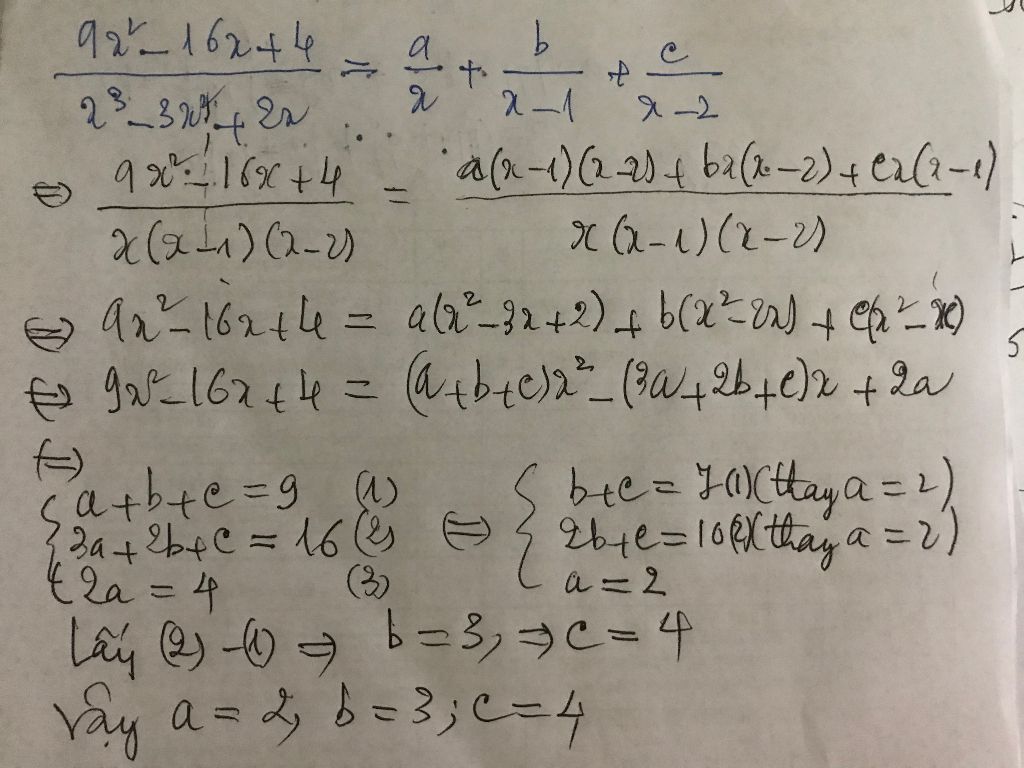 9x² - 16x + 4 / x³ - 3x² + 2x = a/x + b/x-1 + c/x-2
⇔ 9x² - 16x + 4 / x(x-1)(x-2) = a(x-1)(x-2) + bx(x-2) + cx(x-1) / x(x-1)(x-2)
⇔ 9x² - 16x + 4 = a(x² - 3x + 2) + b(x² - 2x) + c(x² - x)
⇔ 9x² - 16x + 4 = (a+b+c)x² - (3a+2b+c)x + 2a
⇔
{ a+b+c = 9 (1) ⇔ { b+c = 7 (1) (thay a = 2)
3a+2b+c = 16 (2) 2b+c = 10 (2) (thay a = 2)
2a = 4 (3) a = 2
Lấy (2) - (1) ⇒ b = 3, ⇒ c = 4
Vậy a = 2, b = 3; c = 4